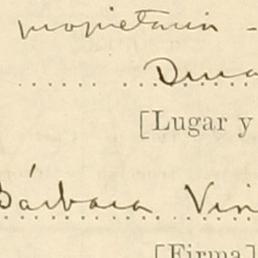 propietaria -
Dura
[Lugar y
Bárbara Vin
[Firma]